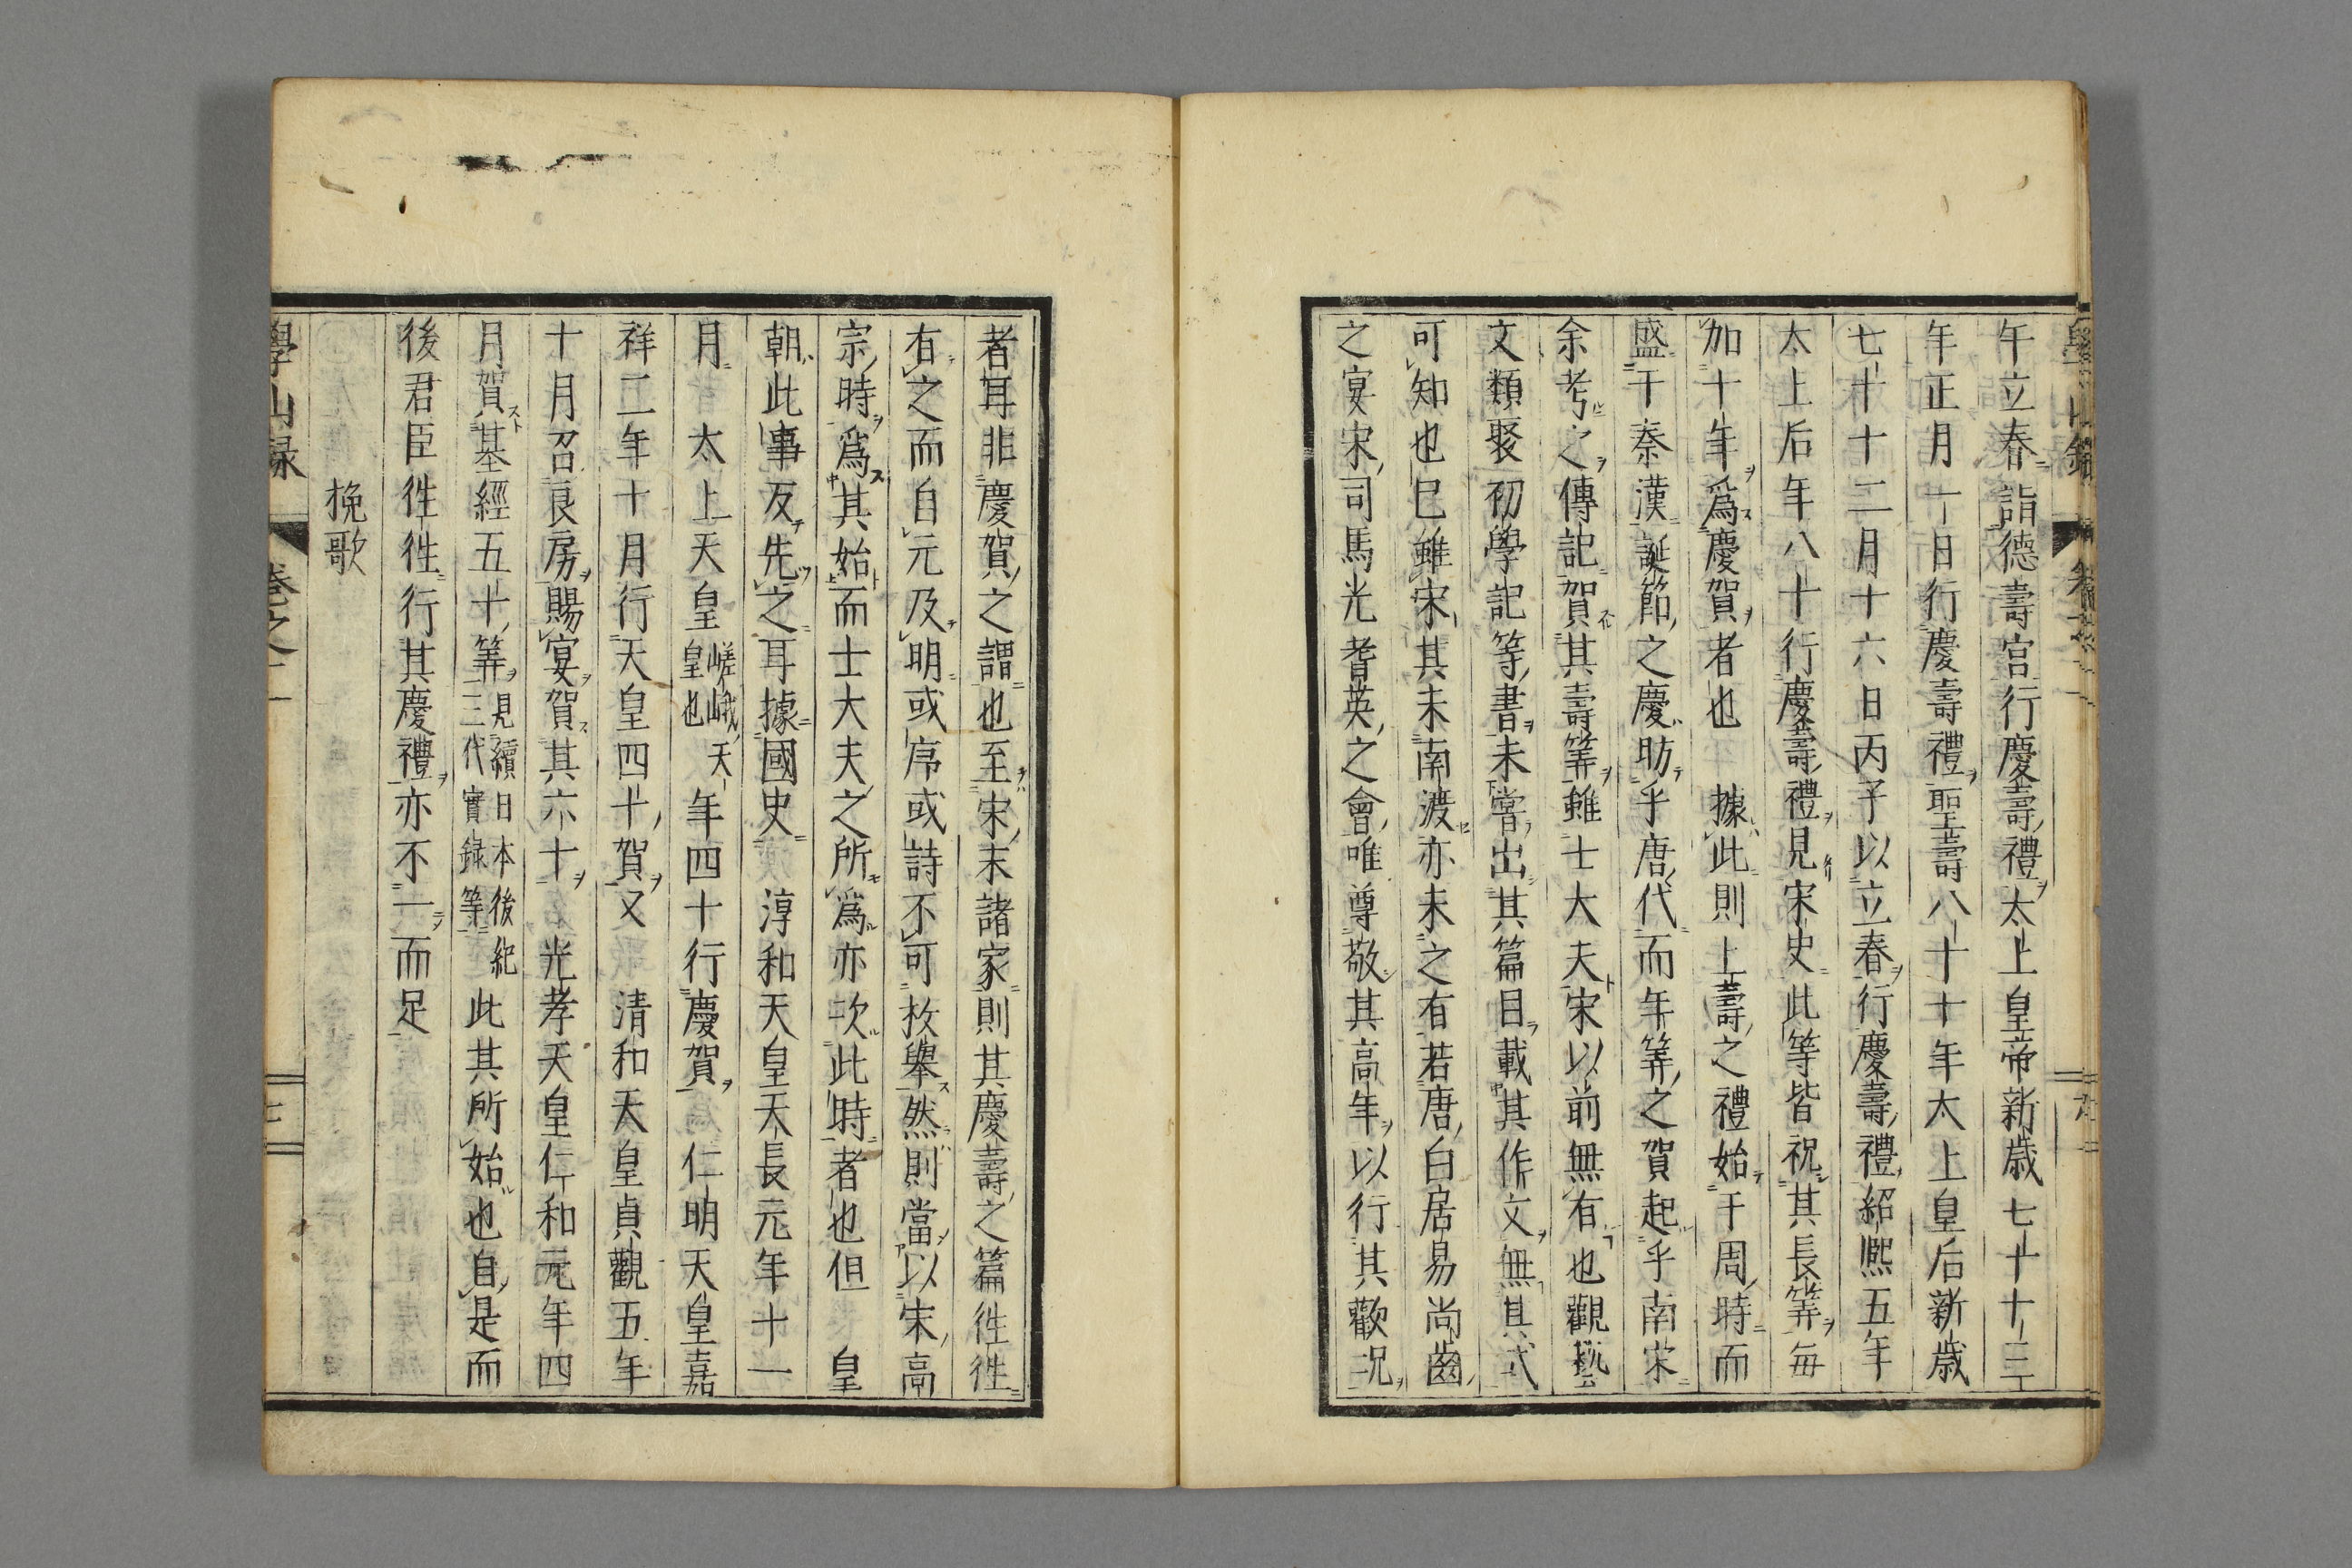 午立春詣德壽宮行慶壽禮太上皇帝新歲七十十三
年正月一日行慶壽禮聖壽八十十年太上皇后新歲
七十十二月十六日丙子以立春行慶壽禮紹熙五年
太上后年八十行慶壽禮見宋史此等皆祝其長筭每
加十年爲慶賀者也　據此則上壽之禮始于周時而
盛于秦漢誕節之慶昉乎唐代而年筭之賀起乎南宋
余考之傳記賀其壽筭雖士大夫宋以前無有也觀藝
文類聚初學記等書未嘗出其篇目載其作文無其式
可知也已雖宋其未南渡亦未之有若唐白居易尚齒
之宴宋司馬光耆英之會唯尊敬其高年以行其歡況
者耳非慶賀之謂也至宋末諸家則其慶壽之篇徃徃
有之而自元及明或序或詩不可枚舉然則當以宋高
宗時爲其始而士大夫之所爲亦次此時者也但　皇
朝此事反先之耳據國史　淳和天皇天長元年十一
月　太上天皇嵯峨天皇也天年四十行慶賀　仁明天皇嘉
祥二年十月行天皇四十賀又　清和天皇貞觀五年
十月召良房賜宴賀其六十　光孝天皇仁和元年四
月賀基經五十筭見續日本後紀三代實錄等此其所始也自是而
後君臣徃徃行其慶禮亦不一而足
挽歌
學山録　卷之一